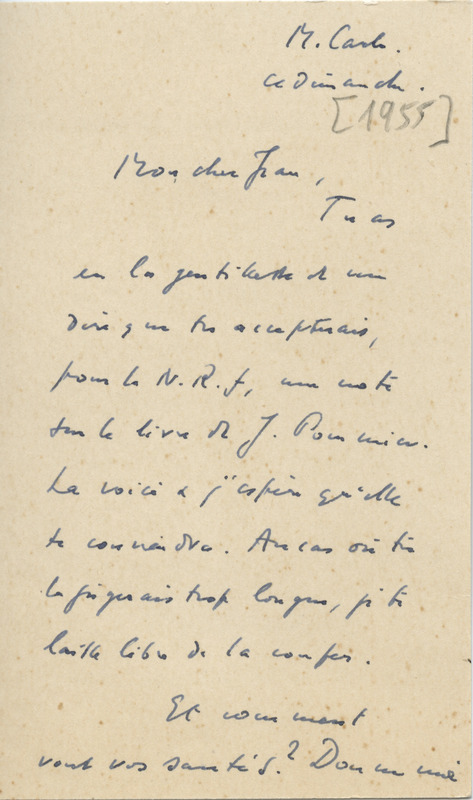 M. Carlo.
ce Dimanche.
[1955]
Mon cher Jean,
Tu as
eu la gentillesse de me
dire que tu accepterais,
pour la N.R.f, une note
sur le livre de J. Pommier.
La voici et j'espère qu'elle
te conviendra. Au cas où tu
la jugerais trop longue, je te
laisse libre de la couper.
Et comment
vont vos santés? Donne moi